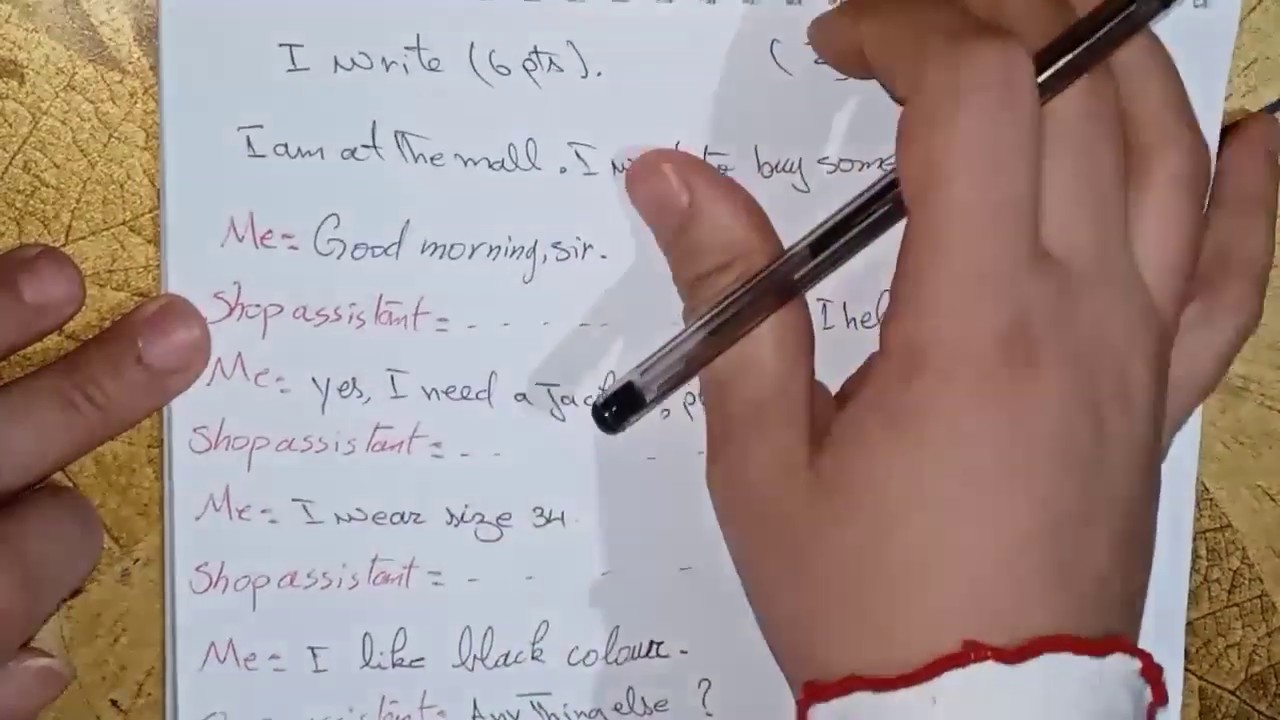 I write (6 pts). (
I am at the mall. I to buy some
Me = Good morning, sir.
Shop assistant = - - - - - I
Me = yes, I need a
Shop assistant = - - - -
Me = I wear size 34.
Shop assistant = - - - -
Me = I like black colour.
Anything else ?